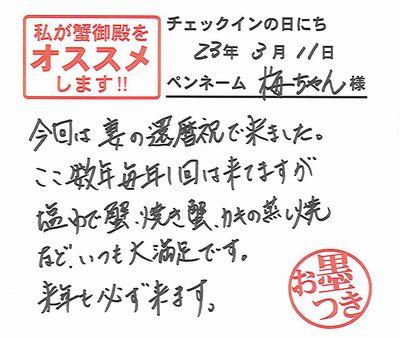 私が蟹御殿を
オススメ
します!!
チェックインの日にち
23年3月11日
ペンネーム 梅ちゃん 様
今回は妻の還暦祝で来ました。
ここ数年毎年1回は来てますが
塩ゆで蟹、焼き蟹、カキの蒸し焼
など、いつも大満足です。
来年も必ず来ます。
お墨つき